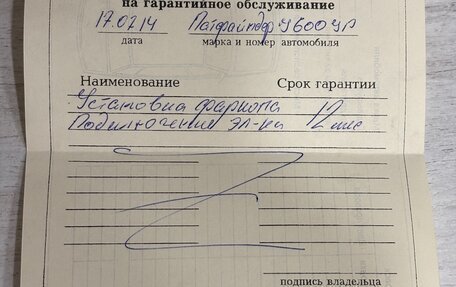 на гарантийное обслуживание
17.02.14 Патфайндер У600УР
дата марка и номер автомобиля
Наименование Срок гарантии
Установка фаркопа 12 мес
Подключение эл-ка
подпись владельца